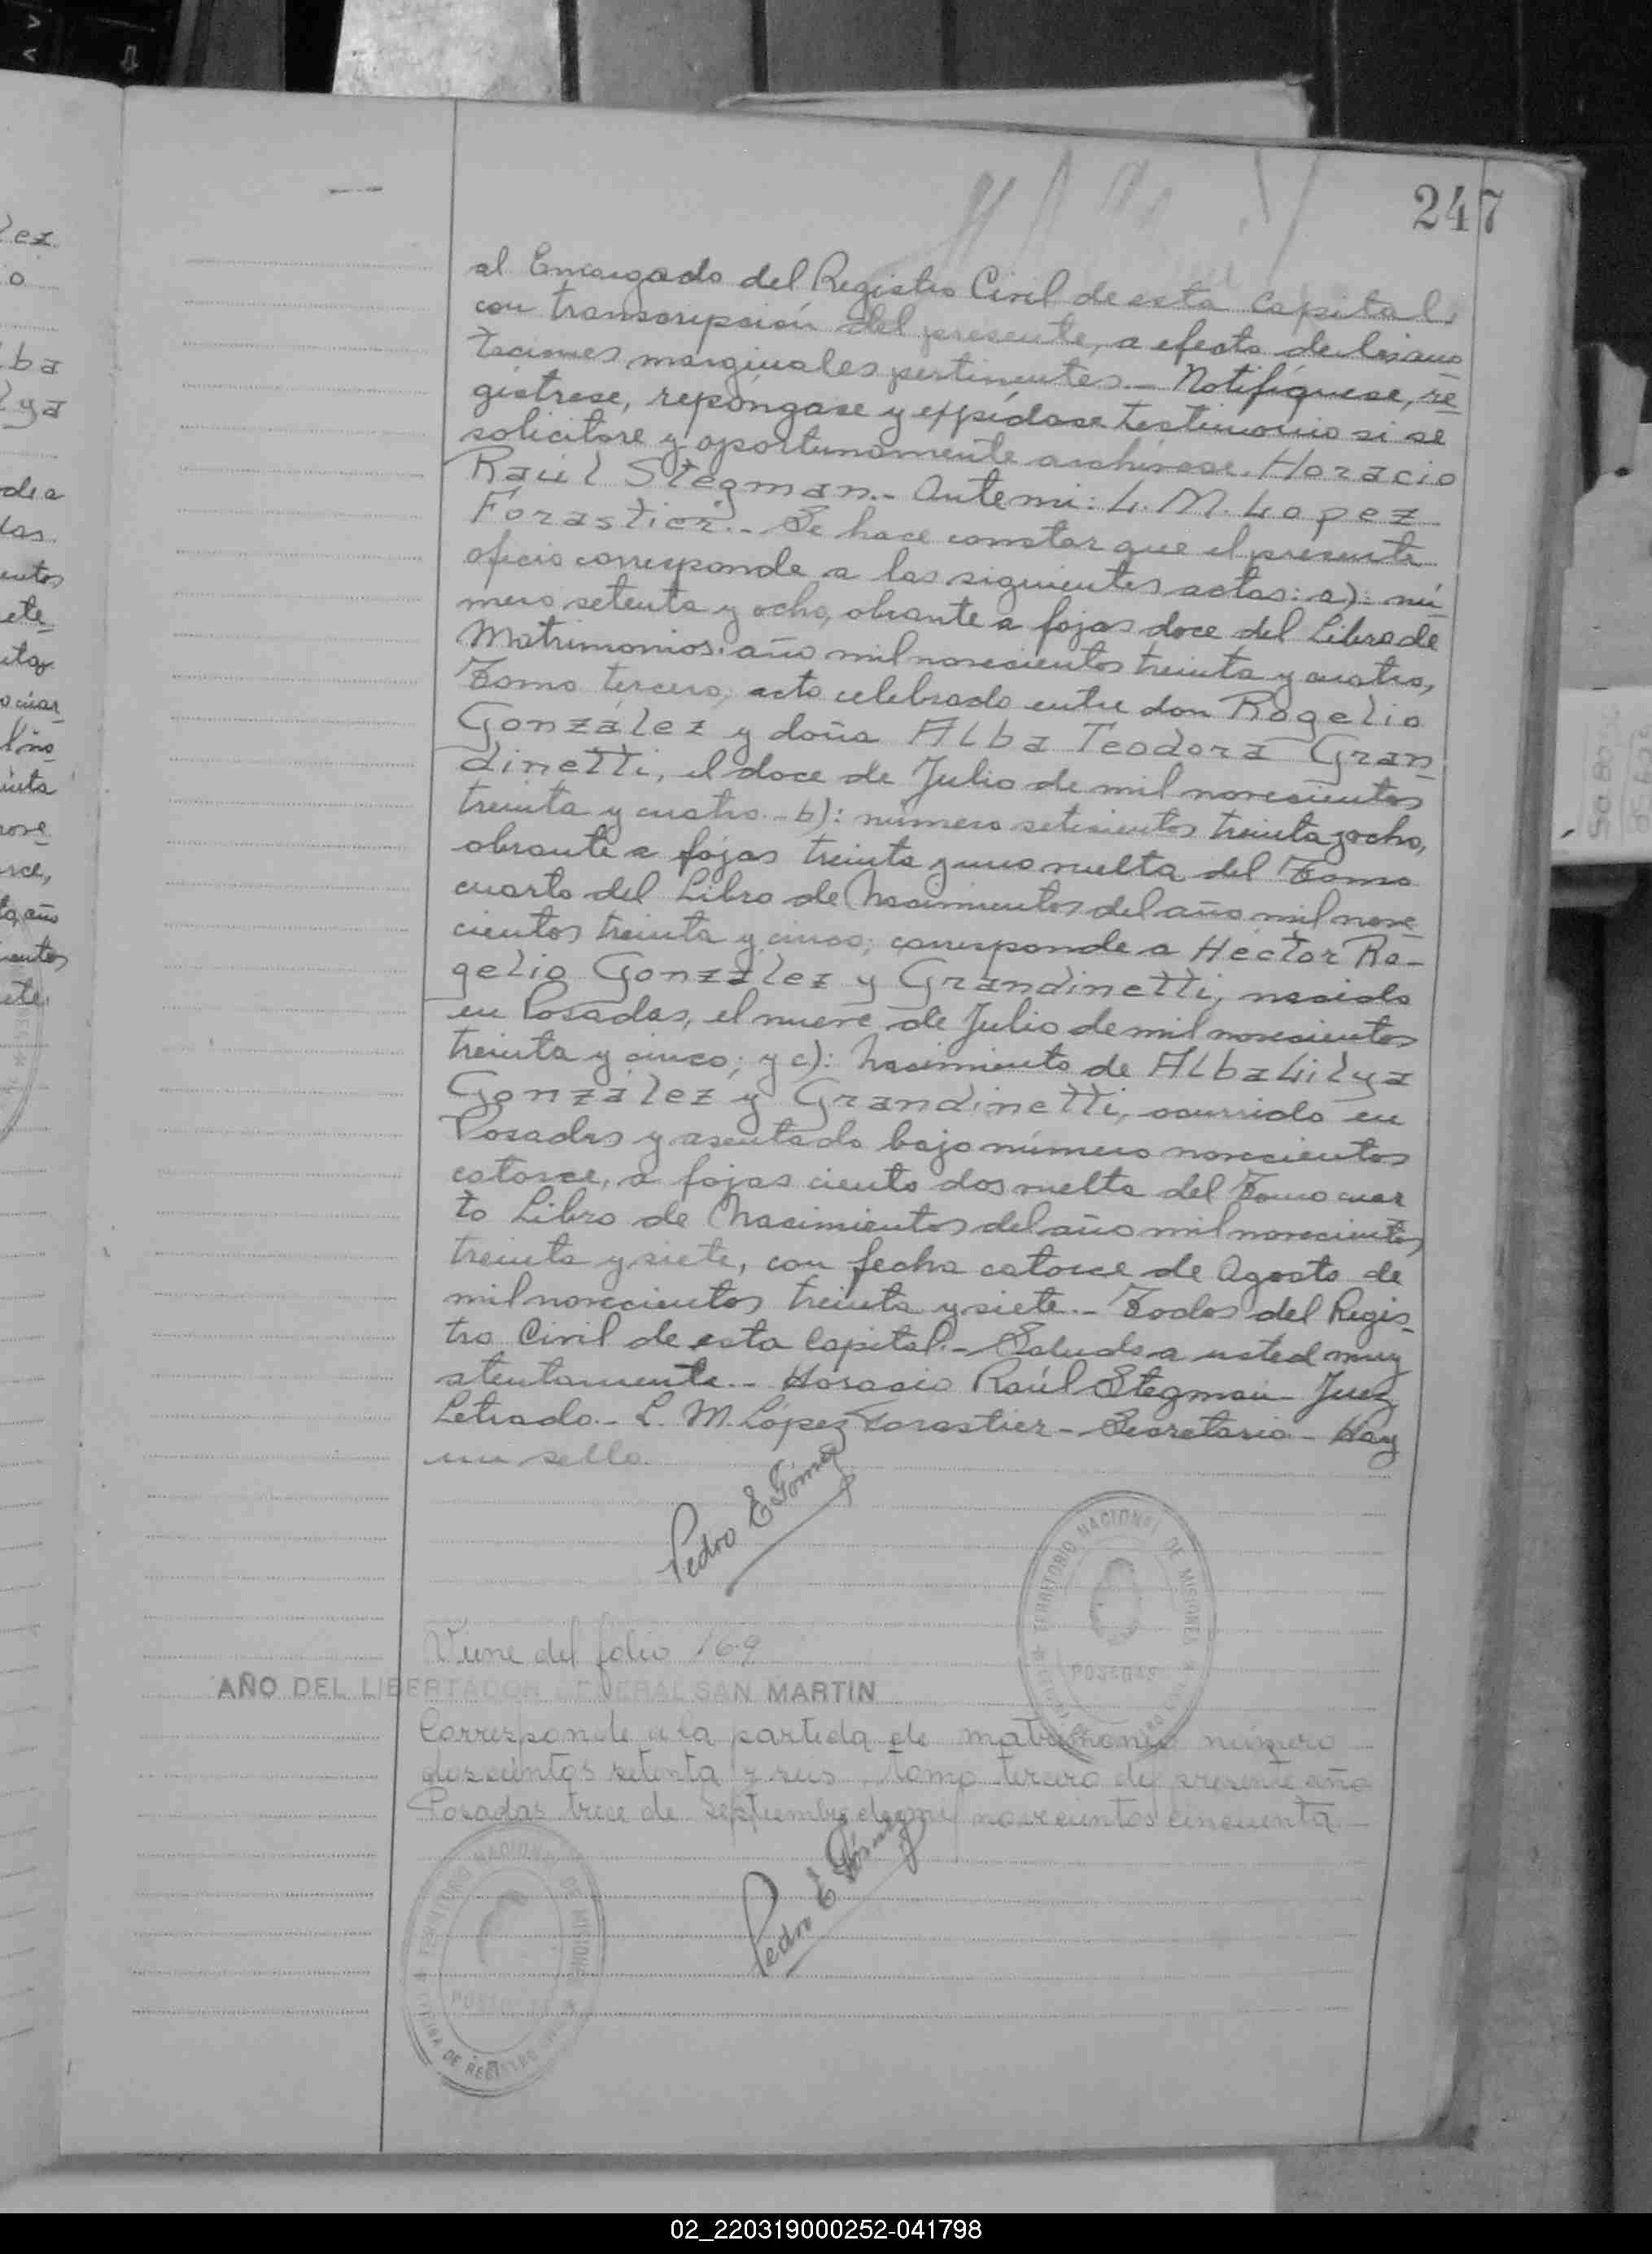 247
al Encargado del Registro Civil de esta Capital,
con transcripción del presente, a efecto de las ano_
taciones marginales pertinentes._ Notifíquese, re_
gistrese, repóngase y expídase testimonio si se
solicitare y oportunamente archívese. Horacio
Raúl Stegman._ Ante mi: L. M. Lopez
Forastier._ Se hace constar que el presente
oficio corresponde a las siguientes actas: a): nú_
mero setenta y ocho, obrante a fojas doce del Libro de
Matrimonios. año mil novecientos treinta y cuatro,
Tomo tercero, acto celebrado entre don Rogelio
González y doña Alba Teodora Gran_
dinetti, el doce de Julio de mil novecientos
treinta y cuatro._ b): número setecientos treinta y ocho,
obrante a fojas treinta y uno vuelta del Tomo
cuarto del Libro de Nacimientos del año mil nove_
cientos treinta y cinco; corresponde a Héctor Ro_
gelio González y Grandinetti, nacido
en Posadas, el nueve de Julio de mil novecientos
treinta y cinco; y c): Nacimiento de Alba Lilya
González y Grandinetti, ocurrido en
Posadas y asentado bajo número novecientos
catorce, a fojas ciento dos vuelta del Tomo cuar
to Libro de Nacimientos del año mil novecientos
treinta y siete, con fecha catorce de Agosto de
mil novecientos treinta y siete._ Todos del Regis_
tro Civil de esta Capital._ Saludo a usted muy
atentamente._ Horacio Raúl Stegman_ Juez
Letrado._ L. M. López Forastier_ Secretario_ Hay
un sello.
Pedro E Gómez
TERRITORIO NACIONAL DE MISIONES
POSADAS
Viene del folio 169
AÑO DEL LIBERTADOR GENERAL SAN MARTIN
Corresponde a la partida de matrimonio número
doscientos setenta y seis, tomo tercero del presente año
Posadas trece de septiembre de mil novecientos cincuenta_
Pedro E Gómez
TERRITORIO NACIONAL DE MISIONES
POSADAS
OFICINA DE REGISTRO
02_220319000252-041798